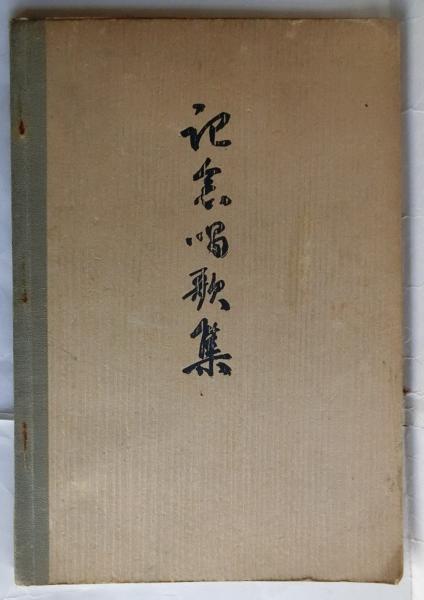 記念唱歌集